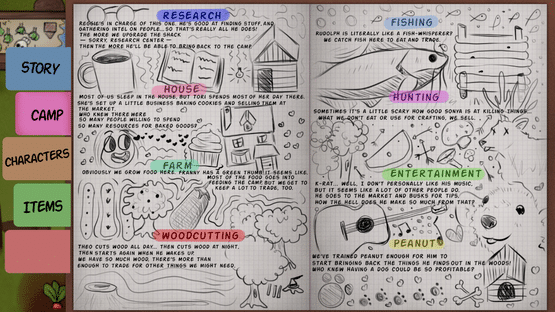 STORY
CAMP
CHARACTERS
ITEMS
RESEARCH
REGGIE'S IN CHARGE OF THIS ONE. HE'S GOOD AT FINDING STUFF, AND
GATHERING INTEL ON PEOPLE... SO THAT'S REALLY ALL HE DOES!
THE MORE WE UPGRADE THE SHACK
- SORRY, RESEARCH CENTER -
THEN THE MORE HE'LL BE ABLE TO BRING BACK TO THE CAMP.
HOUSE
MOST OF US SLEEP IN THE HOUSE, BUT TORI SPENDS MOST OF HER DAY THERE.
SHE'S SET UP A LITTLE BUSINESS BAKING COOKIES AND SELLING THEM AT
THE MARKET.
WHO KNEW THERE WERE
SO MANY PEOPLE WILLING TO SPEND
SO MANY RESOURCES FOR BAKED GOODS?
FARM
OBVIOUSLY WE GROW FOOD HERE. FRANNY HAS A GREEN THUMB IT SEEMS LIKE.
MOST OF THE FOOD GOES INTO
FEEDING THE CAMP BUT WE GET TO
KEEP A LOT TO TRADE, TOO.
WOODCUTTING
THEO CUTS WOOD ALL DAY... THEN CUTS WOOD AT NIGHT.
THEN STARTS AGAIN WHEN HE WAKES UP.
WE HAVE SO MUCH WOOD, THERE'S MORE THAN
ENOUGH TO TRADE FOR OTHER THINGS WE MIGHT NEED.
FISHING
RUDOLPH IS LITERALLY LIKE A FISH-WHISPERER?
WE CATCH FISH HERE TO EAT AND TRADE.
HUNTING
SOMETIMES IT'S A LITTLE SCARY HOW GOOD SONYA IS AT KILLING THINGS.
WHAT WE DON'T EAT OR USE FOR CRAFTING, WE SELL.
ENTERTAINMENT
K-RAT... WELL, I DON'T PERSONALLY LIKE HIS MUSIC,
BUT IT SEEMS LIKE A LOT OF OTHER PEOPLE DO.
HE GOES TO THE MARKET AND BUSKS FOR TIPS.
HOW THE HELL DOES HE MAKE SO MUCH FROM THAT?
PEANUT
WE'VE TRAINED PEANUT ENOUGH FOR HIM TO
START BRINGING BACK THE THINGS HE FINDS OUT IN THE WOODS!
WHO KNEW HAVING A DOG COULD BE SO PROFITABLE?